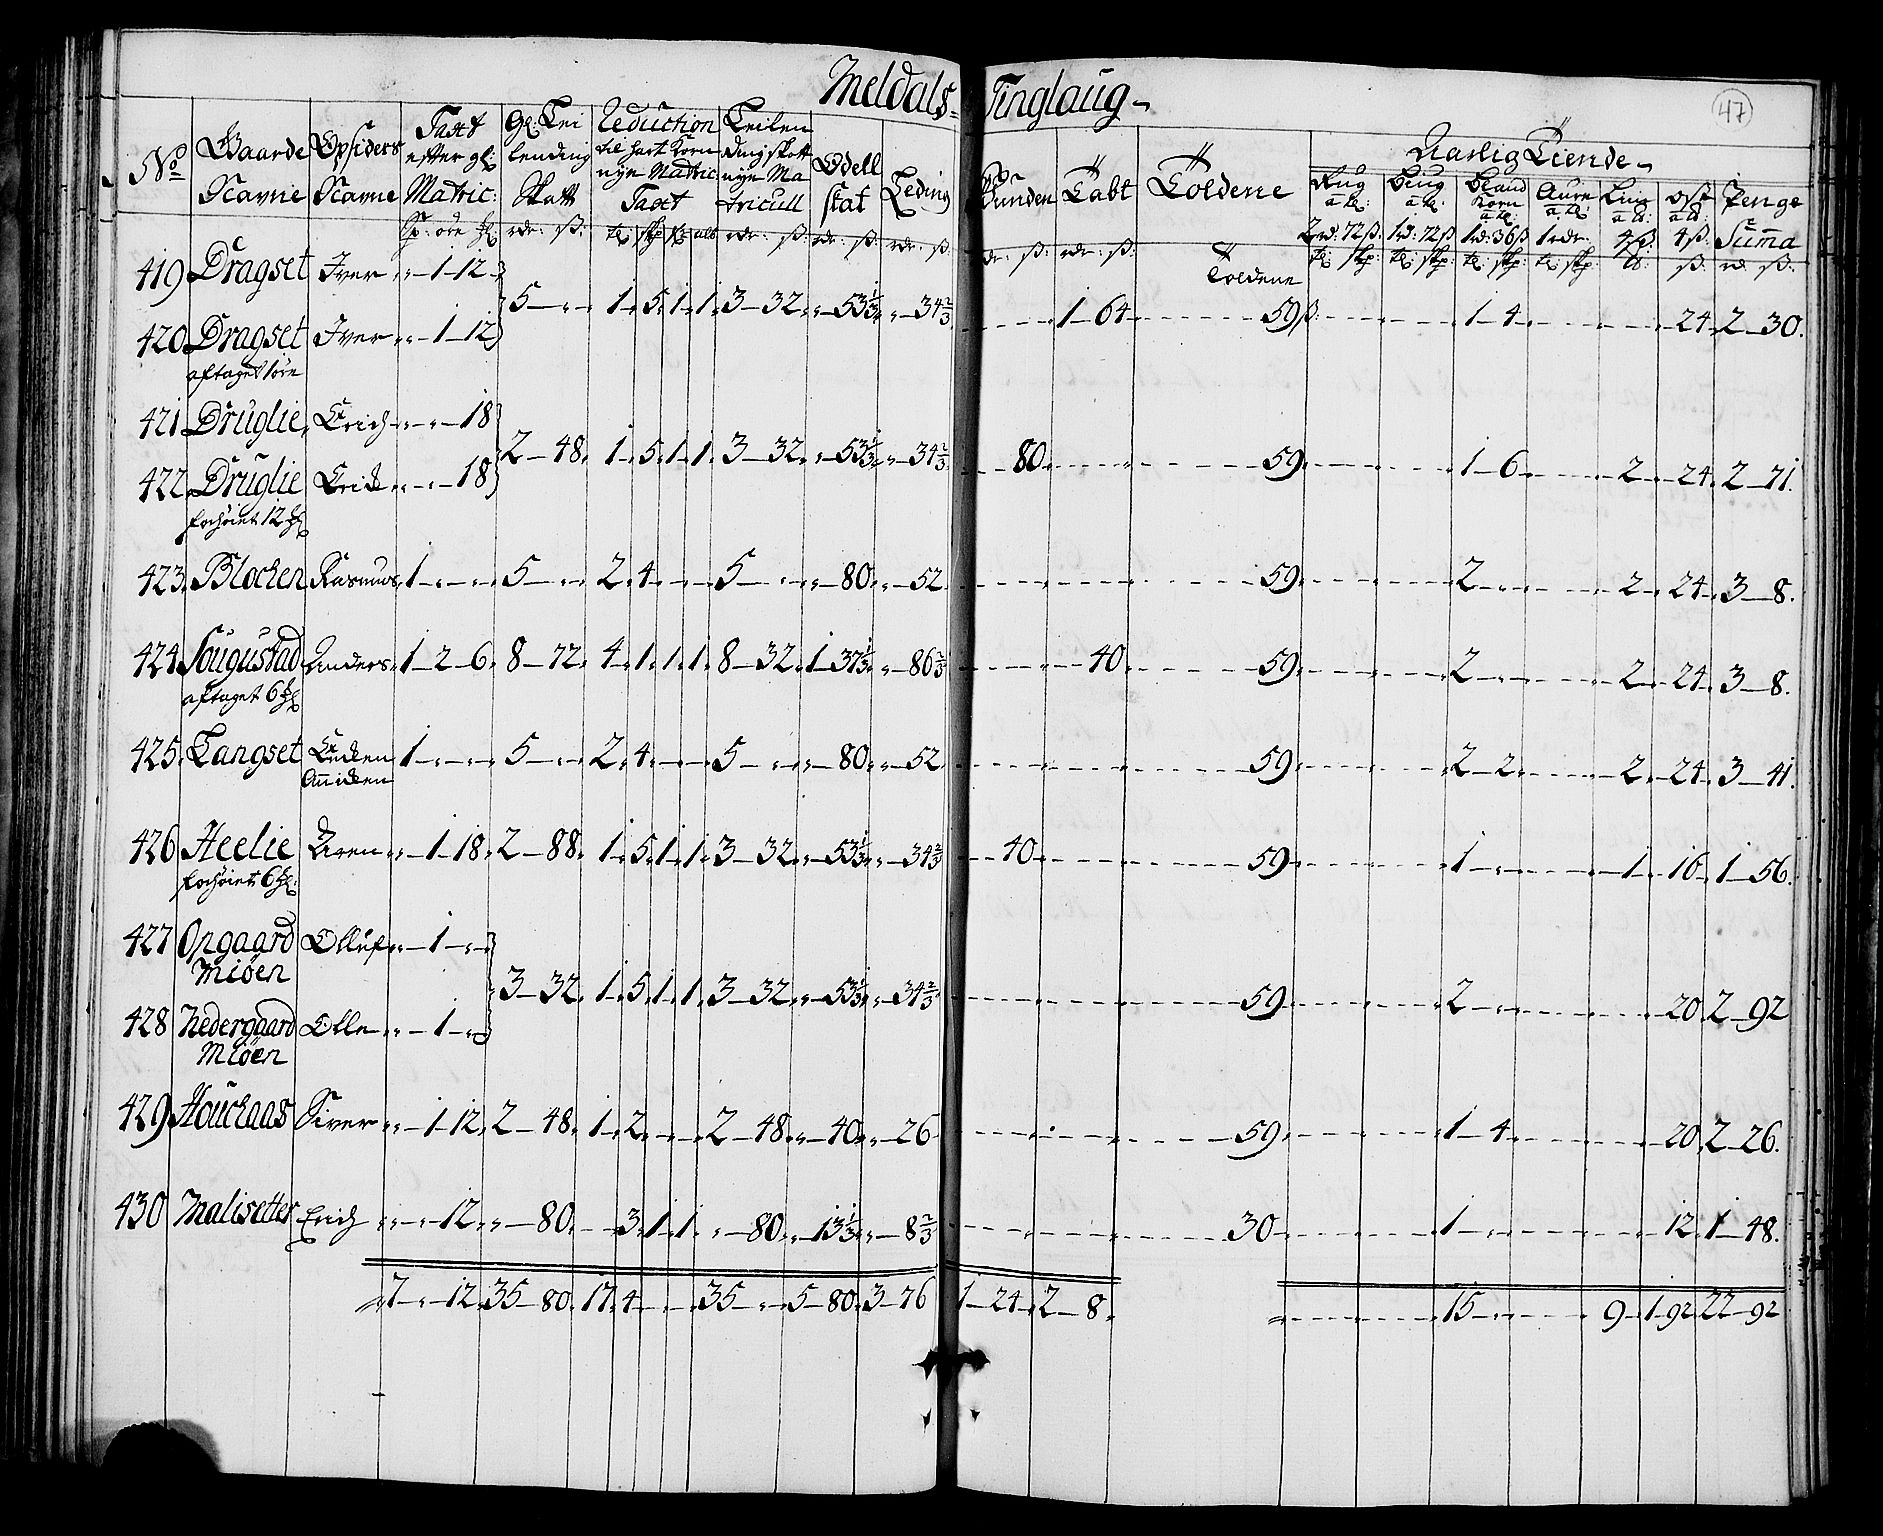 Meldals Tinglaug
47
No Gaarde Navne Opsiders Navne Taxt efter gl: Matric: Gl: Lei lending Skatt Reduction til hart Korn nye Matric: Taxt Leilen dingskatt nye Ma tricull Odell skat Leding Tabt Toldene Aarlig Tiende
Rug a tl: Beug a tl: Bland Korn a tl: Aure a tl: Lin a ost a Penge Summa
2rd: 72ß 1rd: 72ß 1rd: 36ß 1 rdr: 4ß: 4ß:
419 Dragset Iver 1 12
5 1 5 1 1 3 32 53 1/3 34 2/3 1 64 Toldene 59ß: 1 4 24 2 30.
420 Dragset Iver 1 12
aftaget 1 øre
421 Druglie Erich 18
2 48 1 5 1 1 3 32 53 1/3 34 2/3 80 59 1 6 2 24 2 71.
422 Druglie Erich 18
forhøiet 12
423 Blochen Rasmus 1 5 2 4 5 80 52 59 2 2 24 3 8.
424 Sougustad Anders 1 2 6 8 72 4 1 1 1 8 32 1 37 1/3 86 2/3 40 59 2 2 24 3 8.
aftaget 6
425 Langset Encken Anniken 1 5 2 4 5 80 52 59 2 2 2 24 3 41
426 Heelie Aren 1 18 2 88 1 5 1 1 3 32 53 1/3 34 2/3 40 59 1 1 16 1 56.
forhøiet 6
427 Opgaard Miøen Olluf 1
3 32 1 5 1 1 3 32 53 1/3 34 2/3 59 2 20 2 92
428 Nedergaard Miøen Olle 1
429 Houchaas Siver 1 12 2 48 1 2 2 48 40 26 59 1 4 20 2 26.
430 Malisetter Erich 12 80 3 1 1 80 13 1/3 8 2/3 30 1 12 1 48.
7 12 35 80 17 4 35 5 80 3 76 1 24 2 8 15 9 1 92 22 92